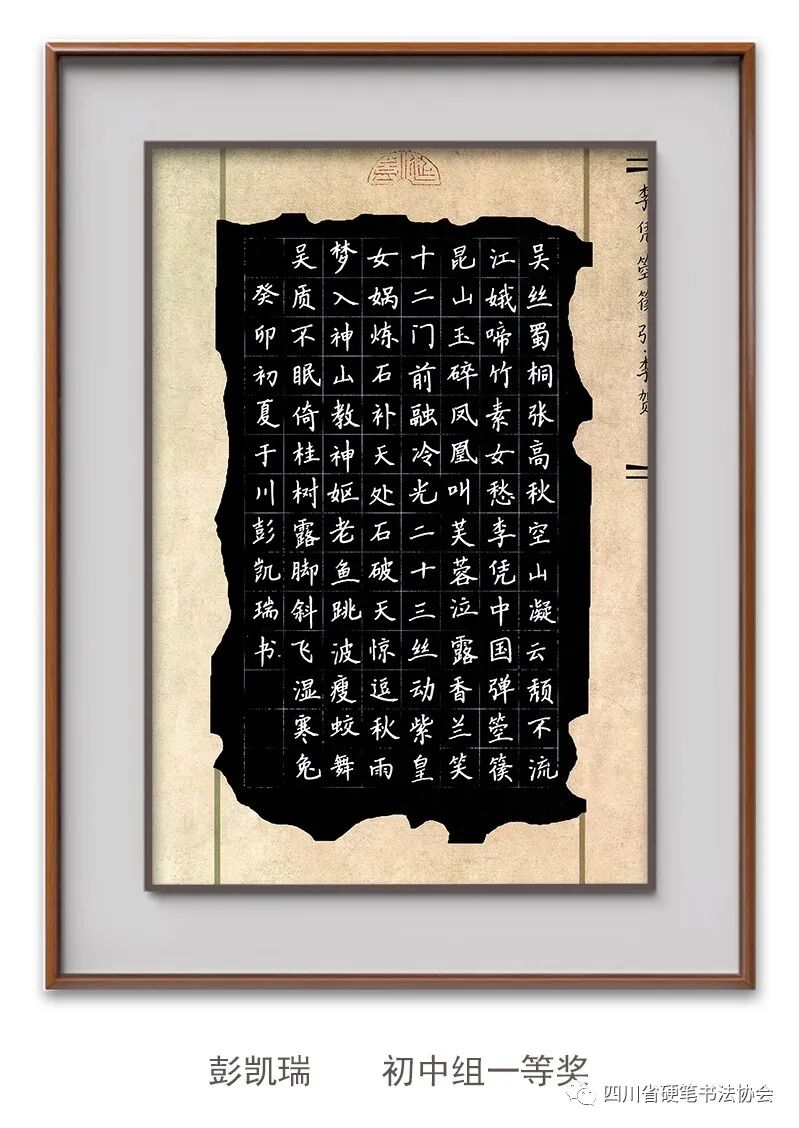 李凭箜篌 李贺
吴丝蜀桐张高秋空山凝云颓不流
江娥啼竹素女愁李凭中国弹箜篌
昆山玉碎凤凰叫芙蓉泣露香兰笑
十二门前融冷光二十三丝动紫皇
女娲炼石补天处石破天惊逗秋雨
梦入神山教神妪老鱼跳波瘦蛟舞
吴质不眠倚桂树露脚斜飞湿寒兔
癸卯初夏于川彭凯瑞书
彭凯瑞 初中组一等奖
四川省硬笔书法协会